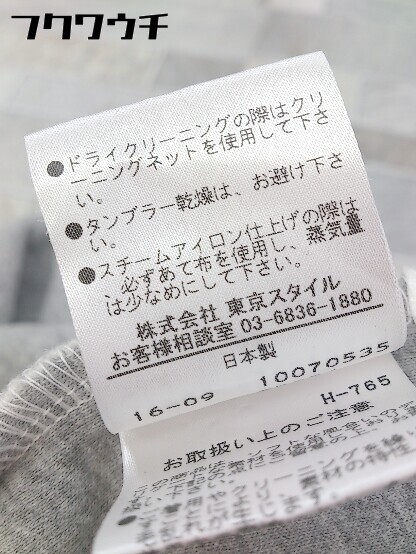 フクワウチ
●ドライクリーニングの際はクリ
ーニングネットを使用して下さ
い。
●タンブラー乾燥は、お避け下さ
い。
●スチームアイロン仕上げの際は
必ずあて布を使用し、蒸気量
は少なめにして下さい。
株式会社 東京スタイル
お客様相談室 03-6836-1880
日本製
16-09 10070535
H-765
お取扱い上のご注意